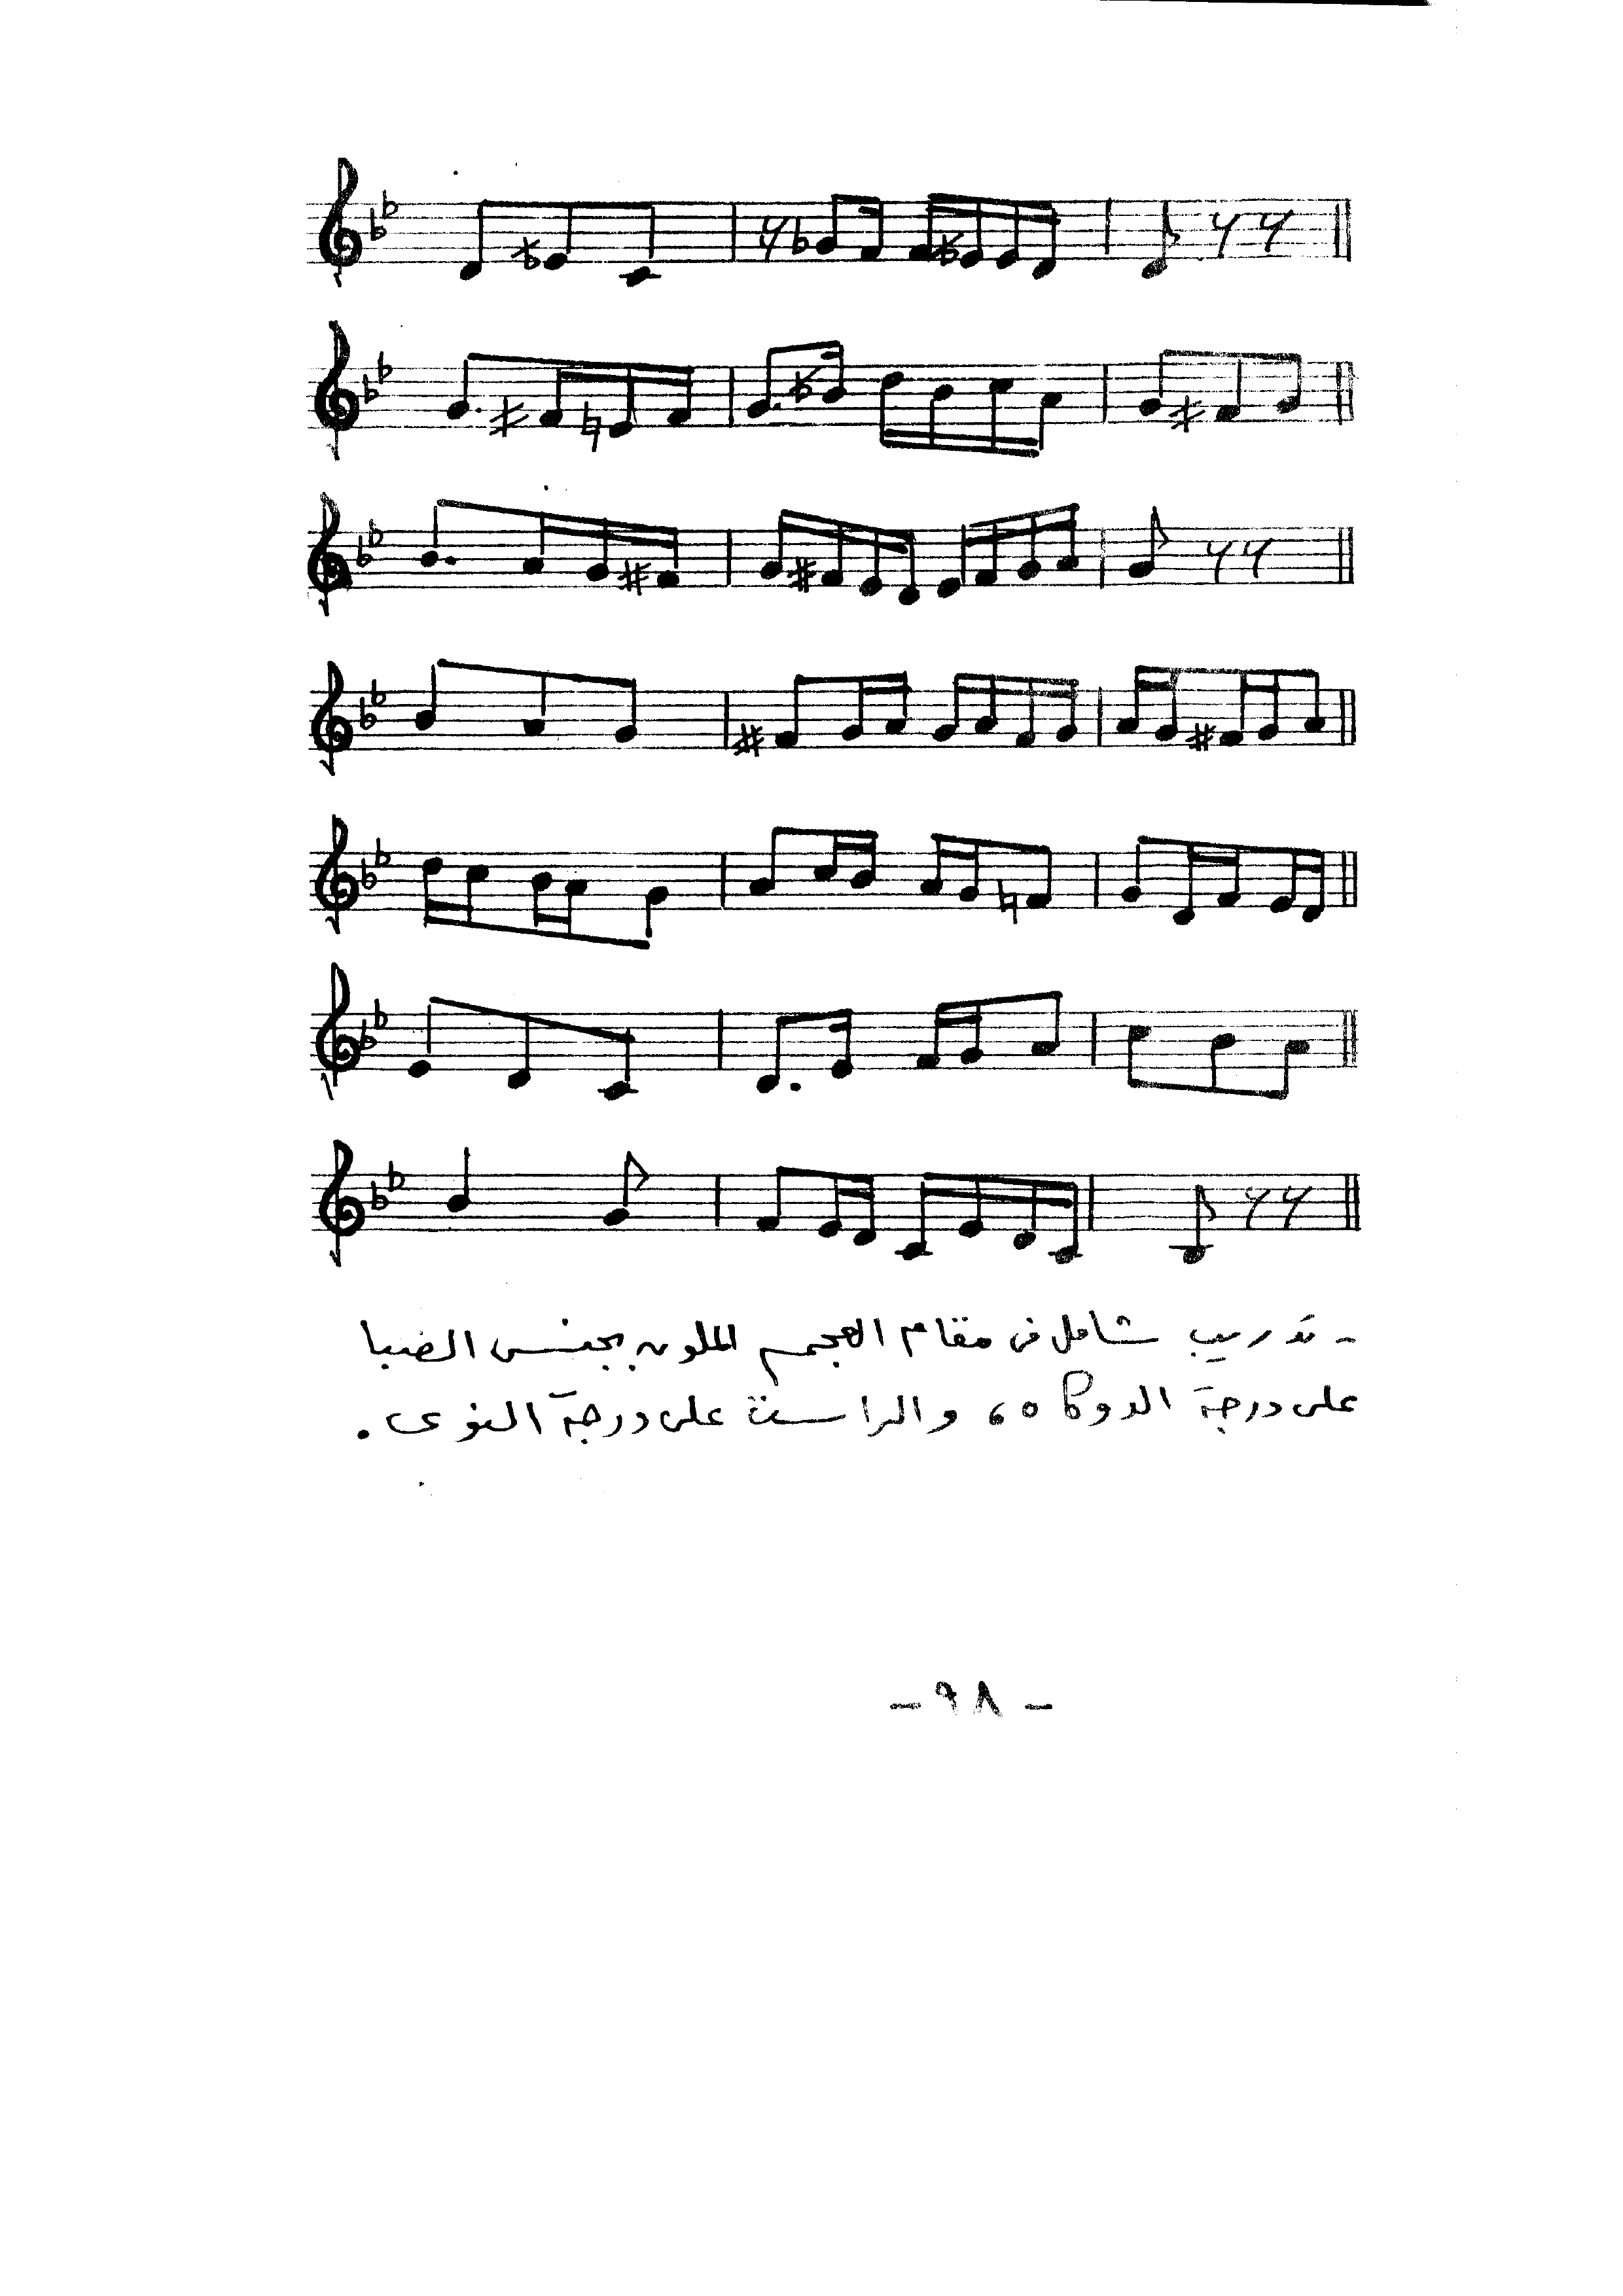 - تدريب شامل فى مقام العجم الملون بجنس الصبا
على درجة الدوكاه، والراست على درجة النوى.
- ٩٨ -